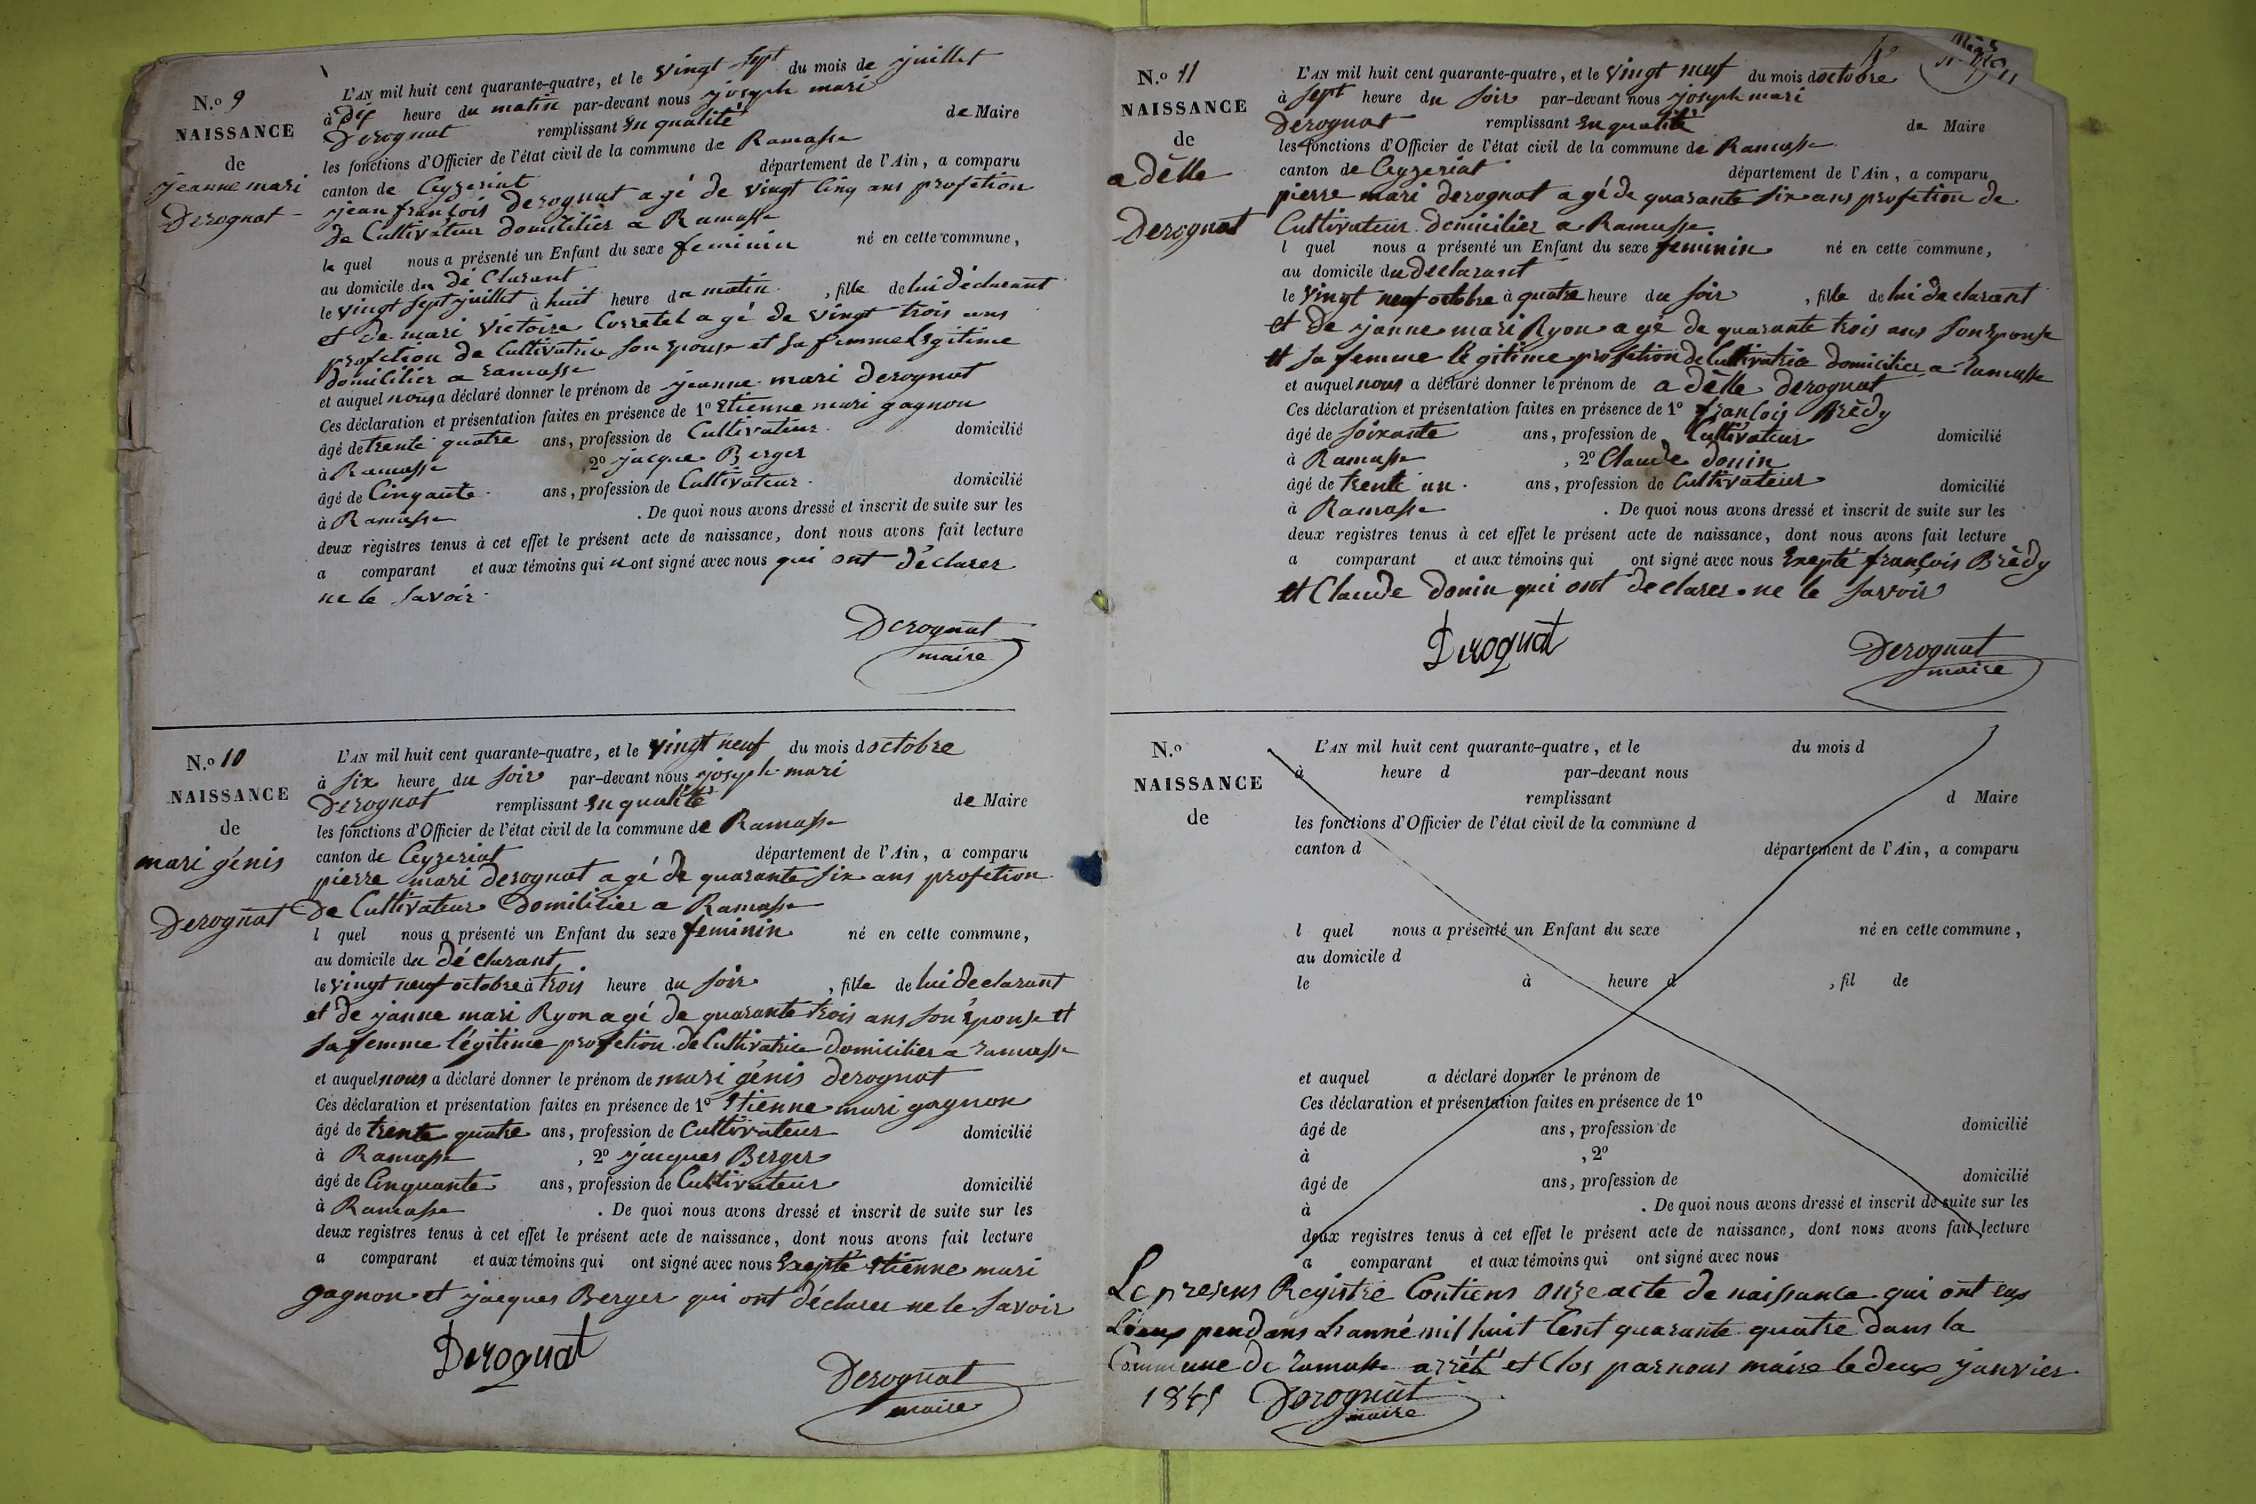 N.o 9
NAISSANCE
de
jeanne mari
Derognat
L'AN mil huit cent quarante-quatre, et le vingt sept du mois de juillet
à dix heure du matin par-devant nous joseph mari
Derognat remplissant en qualité de Maire
les fonctions d'Officier de l'état civil de la commune de Ramasse
canton de Ceyzeriat département de l'Ain, a comparu
jean françois derognat agé de vingt cinq ans profetion
de Cultivateur domicilier a Ramasse
le quel nous a présenté un Enfant du sexe feminin né en cette commune,
au domicile du déclarant
le vingt sept juillet à huit heure du matin, fille de lui déclarant
et de mari victoire Corretel agé de vingt trois ans
profetion de Cultivatrice son epouse et sa femme légitime
domicilier a ramasse
et auquel nous a déclaré donner le prénom de jeanne mari derognat
Ces déclaration et présentation faites en présence de 1o Etienne mari gagnon
âgé de trente quatre ans, profession de Cultivateur domicilié
à Ramasse, 2o jacque Berger
âgé de Cinqante ans, profession de Cultivateur domicilié
à Ramasse . De quoi nous avons dressé et inscrit de suite sur les
deux registres tenus à cet effet le présent acte de naissance, dont nous avons fait lecture
a comparant et aux témoins qui n ont signé avec nous qui ont déclarer
ne le savoir
Derognat
maire
N.o 10
NAISSANCE
de
mari génis
Derognat
L'AN mil huit cent quarante-quatre, et le vingt neuf du mois d octobre
à six heure du soir par-devant nous joseph mari
Derognat remplissant en qualité de Maire
les fonctions d'Officier de l'état civil de la commune de Ramasse
canton de Ceyzeriat département de l'Ain, a comparu
pierre mari derognat agé de quarante six ans profetion
de Cultivateur domicilier a Ramasse
l quel nous a présenté un Enfant du sexe feminin né en cette commune,
au domicile du déclarant
le vingt neuf octobre à trois heure du soir, fille de lui declarant
et de janne mari Ryon agé de quarante trois ans son épouse et
sa femme légitime profetion de Cultivatrice domicilier a ramasse
et auquel nous a déclaré donner le prénom de mari génis derognat
Ces déclaration et présentation faites en présence de 1o Etienne mari gagnon
âgé de trente quatre ans, profession de Cultivateur domicilié
à Ramasse, 2o jacques Berger
âgé de Cinquante ans, profession de Cultivateur domicilié
à Ramasse . De quoi nous avons dressé et inscrit de suite sur les
deux registres tenus à cet effet le présent acte de naissance, dont nous avons fait lecture
a comparant et aux témoins qui ont signé avec nous Exepté etienne mari
gagnon et jacques Berger qui ont déclarer ne le savoir
Derognat
Derognat
maire
N.o 11
NAISSANCE
de
adèlle
Derognat
L'AN mil huit cent quarante-quatre, et le vingt neuf du mois d octobre
à sept heure du soir par-devant nous joseph mari
Derognat remplissant en qualité de Maire
les fonctions d'Officier de l'état civil de la commune de Ramasse
canton de Ceyzeriat département de l'Ain, a comparu
pierre mari derognat agé de quarante six ans profetion de
Cultivateur domicilier a Ramasse
l quel nous a présenté un Enfant du sexe feminin né en cette commune,
au domicile du declarant
le vingt neuf octobre à quatre heure du soir, fille de lui declarant
et de janne mari Ryon agé de quarante trois ans son Eponse
et sa femme légitime profetion de Cultivatrice domicilier a ramasse
et auquel nous a déclaré donner le prénom de adèlle derognat
Ces déclaration et présentation faites en présence de 1o françois Brèdy
âgé de soixante ans, profession de Cultivateur domicilié
à Ramasse, 2o Claude donin
âgé de trente un ans, profession de Cultivateur domicilié
à Ramasse . De quoi nous avons dressé et inscrit de suite sur les
deux registres tenus à cet effet le présent acte de naissance, dont nous avons fait lecture
a comparant et aux témoins qui ont signé avec nous Exepté françois Brèdy
et Claude donin qui ont declarer ne le savoir
Derognat
Derognat
maire
N.o
NAISSANCE
de
L'AN mil huit cent quarante-quatre, et le du mois d
à heure d par-devant nous
remplissant d Maire
les fonctions d'Officier de l'état civil de la commune d
canton d département de l'Ain, a comparu
l quel nous a présenté un Enfant du sexe né en cette commune,
au domicile d
le à heure d , fil de
et auquel a déclaré donner le prénom de
Ces déclaration et présentation faites en présence de 1o
âgé de ans, profession de domicilié
à , 2o
âgé de ans, profession de domicilié
à . De quoi nous avons dressé et inscrit de suite sur les
deux registres tenus à cet effet le présent acte de naissance, dont nous avons fait lecture
a comparant et aux témoins qui ont signé avec nous
Le presens Registre Contiens onze acte de naissance qui ont eus
Lieux pendans L'anné mil huit Cent quarante quatre dans la
Commune de ramasse arrété et Clos par nous maire le deux janvier
1845 Derognat
maire